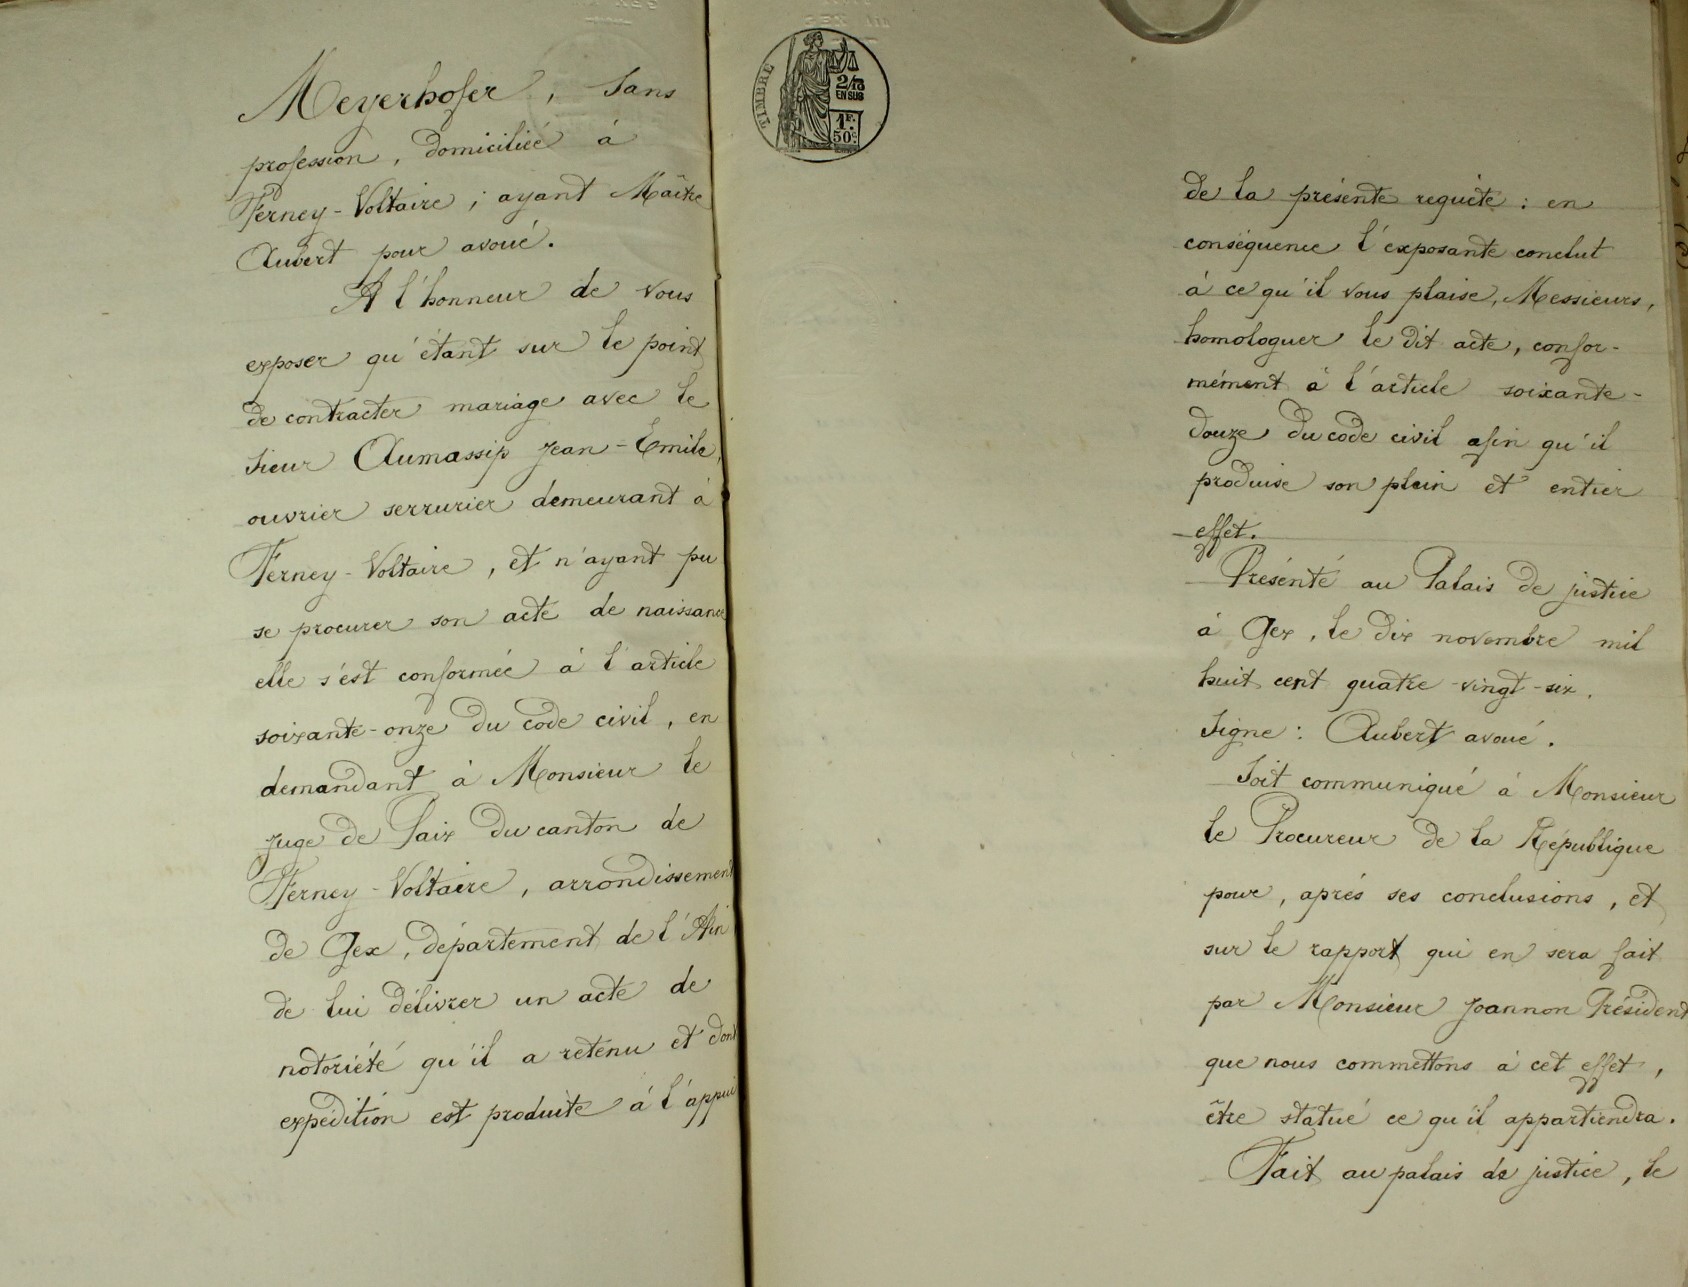 Meyerhofer, Sans
profession, domiciliée à
Ferney-Voltaire; ayant Maître
Aubert pour avoué.
A l'honneur de vous
exposer qu'étant sur le point
de contracter mariage avec le
sieur Aumassip Jean-Emile,
ouvrier serrurier demeurant à
Ferney-Voltaire, et n'ayant pu
se procurer son acte de naissance
elle s'est conformée à l'article
soixante-onze du code civil, en
demandant à Monsieur le
juge de Paix du canton de
Ferney-Voltaire, arrondissement
de Gex, département de l'Ain
de lui délivrer un acte de
notoriété qu'il a retenu et dont
expédition est produite à l'appui
TIMBRE
2/10
EN SUS
1F.
50c.
de la présente requête : en
conséquence l'exposante conclut
à ce qu'il vous plaise, Messieurs,
homologuer le dit acte, confor-
mément à l'article soixante-
douze du code civil afin qu'il
produise son plein et entier
effet.
Présenté au Palais de justice
à Gex, le dix novembre mil
huit cent quatre-vingt-six.
Signe : Aubert avoué.
Soit communiqué à Monsieur
le Procureur de la République
pour, après ses conclusions, et
sur le rapport qui en sera fait
par Monsieur Joannon Président
que nous commettons à cet effet,
être statué ce qu'il appartiendra.
Fait au palais de justice, le